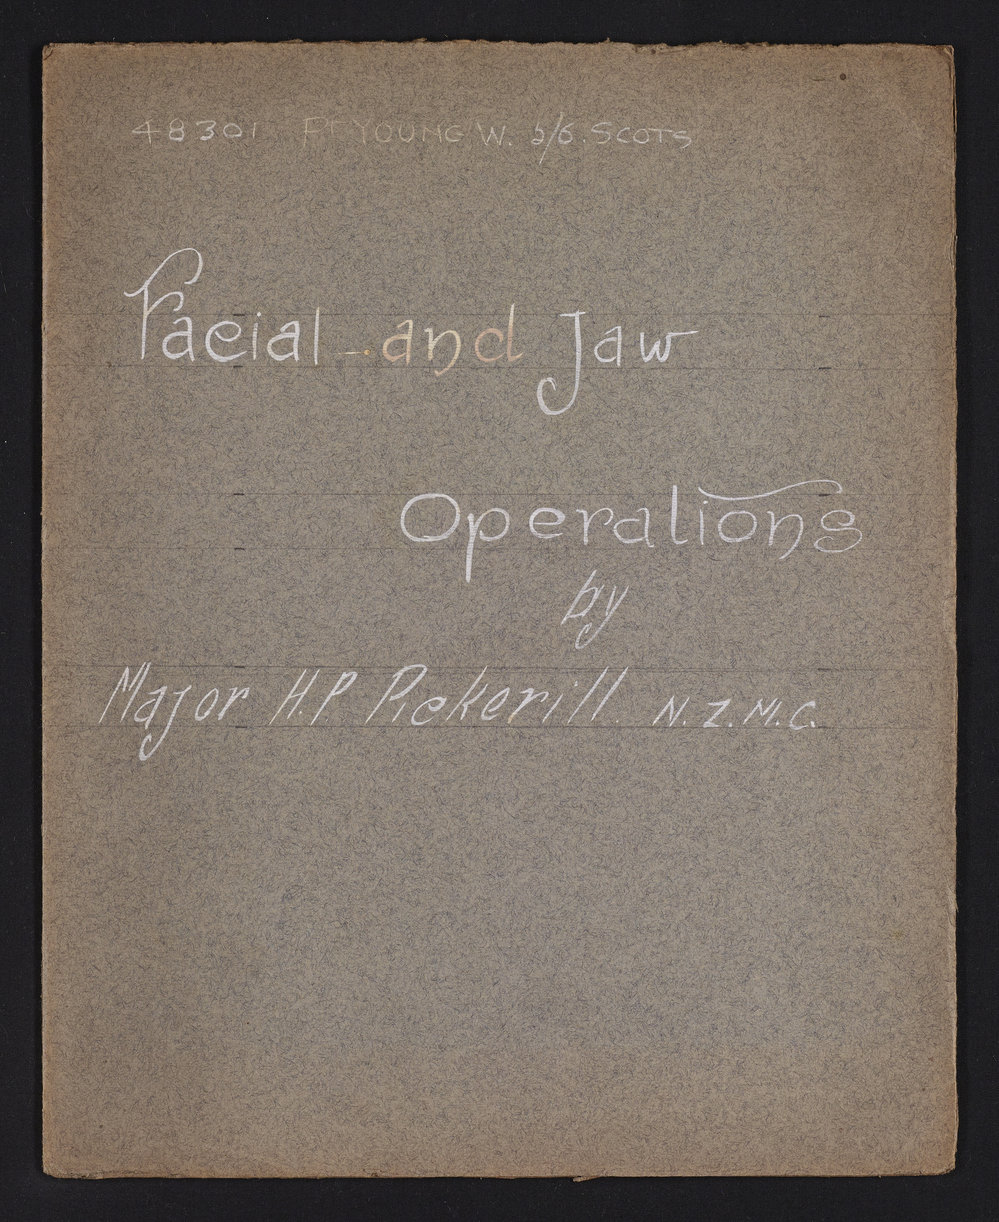 48301 PT YOUNG W. 2/6. SCOTS
Facial and Jaw
Operations
by
Major H.P. Pickerill. N.Z.M.C.